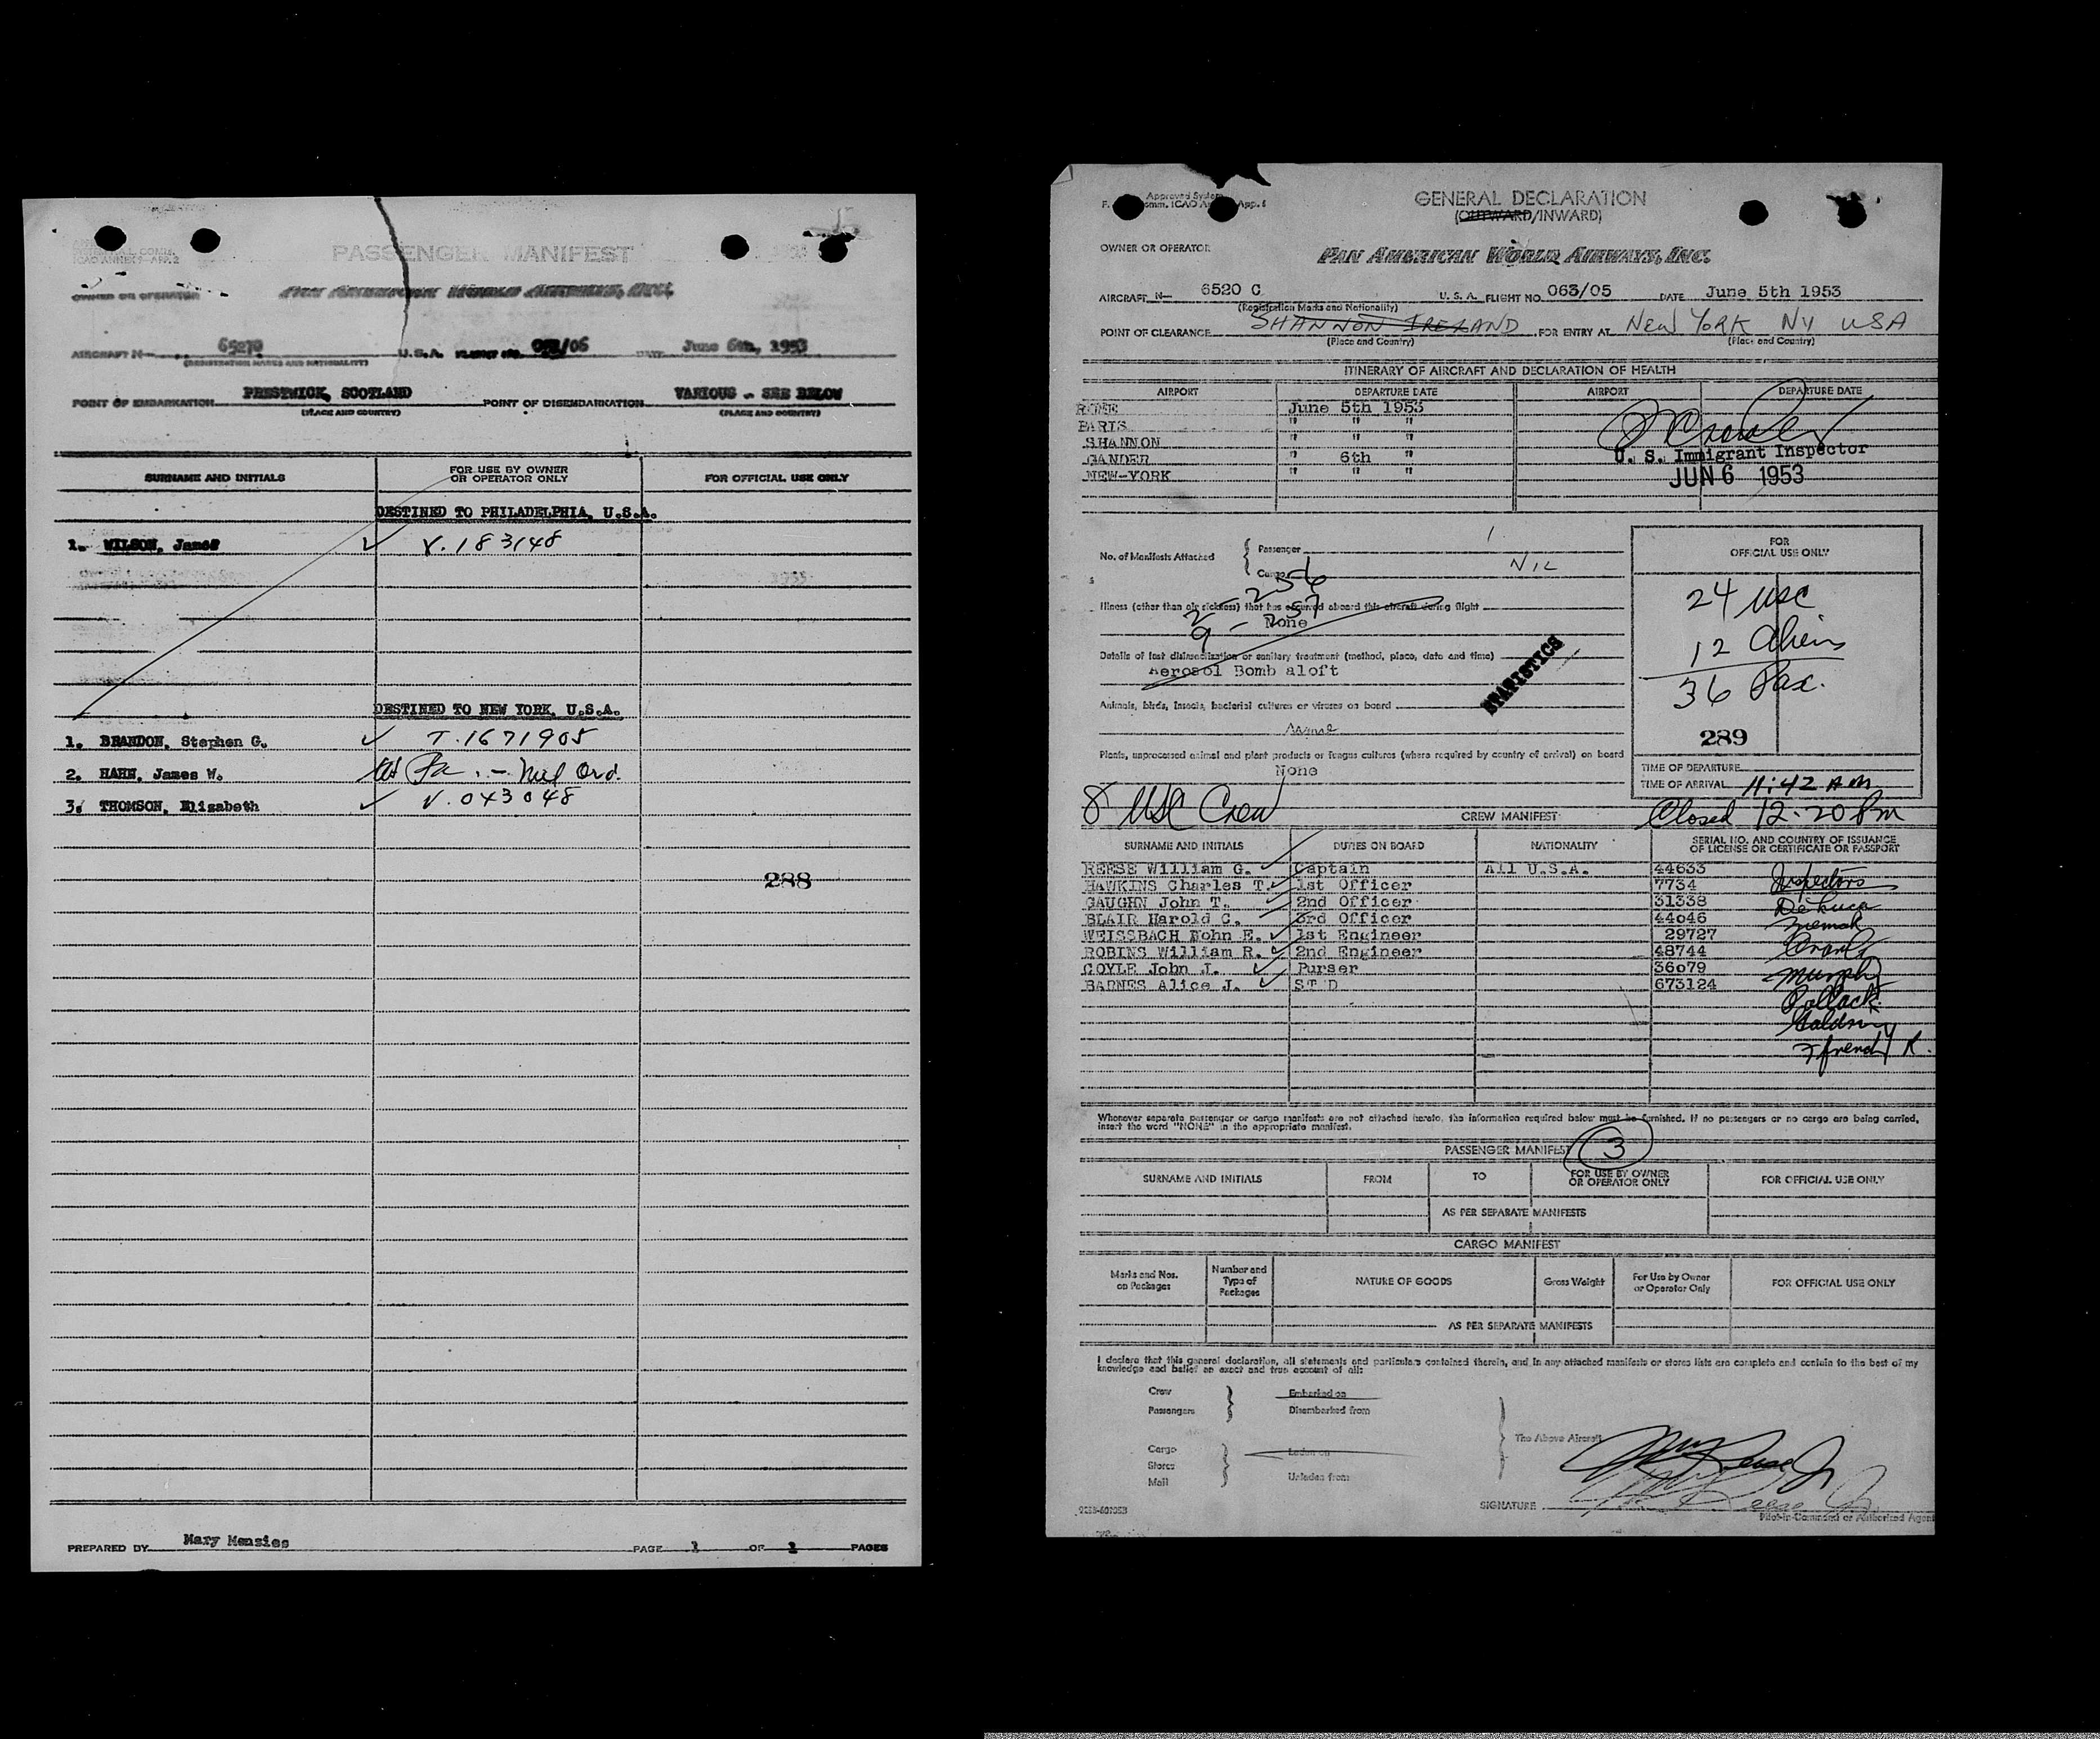 PASSENGER MANIFEST
ICAO ANNEX 9—APP. 2
OWNER OR OPERATOR
PAN AMERICAN WORLD AIRWAYS, INC.
AIRCRAFT N— U.S.A. FLIGHT NO. /06 DATE June 6th, 1953
(REGISTRATION MARKS AND NATIONALITY)
POINT OF EMBARKATION PRESTWICK, SCOTLAND POINT OF DISEMBARKATION VARIOUS - SEE BELOW
(PLACE AND COUNTRY) (PLACE AND COUNTRY)
SURNAME AND INITIALS FOR USE BY OWNER OR OPERATOR ONLY FOR OFFICIAL USE ONLY
DESTINED TO PHILADELPHIA, U.S.A.
1. WILSON, James V.183148
DESTINED TO NEW YORK, U.S.A.
1. BRANDON, Stephen G. T.1671905
2. HAHN, James W. Ord.
3. THOMSON, Elizabeth V.043048
288
PREPARED BY Mary Menzies PAGE 1 OF 1 PAGES
Approved System
F. comm. ICAO App. 5
GENERAL DECLARATION
(OUTWARD/INWARD)
OWNER OR OPERATOR
PAN AMERICAN WORLD AIRWAYS, INC.
AIRCRAFT N— 6520 C U. S. A. FLIGHT NO. 063/05 DATE June 5th 1953
(Registration Marks and Nationality)
POINT OF CLEARANCE SHANNON IRELAND FOR ENTRY AT NEW YORK NY USA
(Place and Country) (Place and Country)
ITINERARY OF AIRCRAFT AND DECLARATION OF HEALTH
AIRPORT DEPARTURE DATE AIRPORT DEPARTURE DATE
ROME June 5th 1953
PARIS " " "
SHANNON " " "
GANDER " 6th "
NEW-YORK " " "
U. S. Immigrant Inspector
JUN 6 1953
No. of Manifests Attached { Passenger 1
Cargo NIL
2 - 256
9 - 257
Illness (other than air sickness) that has occurred aboard this aircraft during flight
None
Details of last disinsectization or sanitary treatment (method, place, date and time)
Aerosol Bomb aloft
STATISTICS
Animals, birds, insects, bacterial cultures or viruses on board
Plants, unprocessed animal and plant products or fungus cultures (where required by country of arrival) on board
None
FOR OFFICIAL USE ONLY
24 USC
12 Aliens
36 Pax.
289
TIME OF DEPARTURE
TIME OF ARRIVAL 11:42 AM
8 USC Crew CREW MANIFEST Closed 12:20 Pm
SURNAME AND INITIALS DUTIES ON BOARD NATIONALITY SERIAL NO. AND COUNTRY OF ISSUANCE OF LICENSE OR CERTIFICATE OR PASSPORT
REESE William G. Captain All U.S.A. 44633
HAWKINS Charles T. 1st Officer 7734 Inspectors
GAUGHN John T. 2nd Officer 31338 DeLuca
BLAIR Harold C. 3rd Officer 44046
WEISSBACH John E. 1st Engineer 29727
ROBINS William R. 2nd Engineer 48744
COYLE John J. Purser 36079 Murphy
BARNES Alice J. ST'D 673124
Pollack
Whenever separate passenger or cargo manifests are not attached hereto, the information required below must be furnished. If no passengers or no cargo are being carried,
insert the word "NONE" in the appropriate manifest.
PASSENGER MANIFEST 3
SURNAME AND INITIALS FROM TO FOR USE BY OWNER OR OPERATOR ONLY FOR OFFICIAL USE ONLY
AS PER SEPARATE MANIFESTS
CARGO MANIFEST
Marks and Nos. on Packages Number and Type of Packages NATURE OF GOODS Gross Weight For Use by Owner or Operator Only FOR OFFICIAL USE ONLY
AS PER SEPARATE MANIFESTS
I declare that this general declaration, all statements and particulars contained therein, and in any attached manifests or stores lists are complete and contain to the best of my
knowledge and belief an exact and true account of all:
Crew Embarked on
Passengers Disembarked from
The Above Aircraft
Cargo Laden on
Stores
Mail Unladen from
SIGNATURE
Pilot-in-Command or Authorized Agent